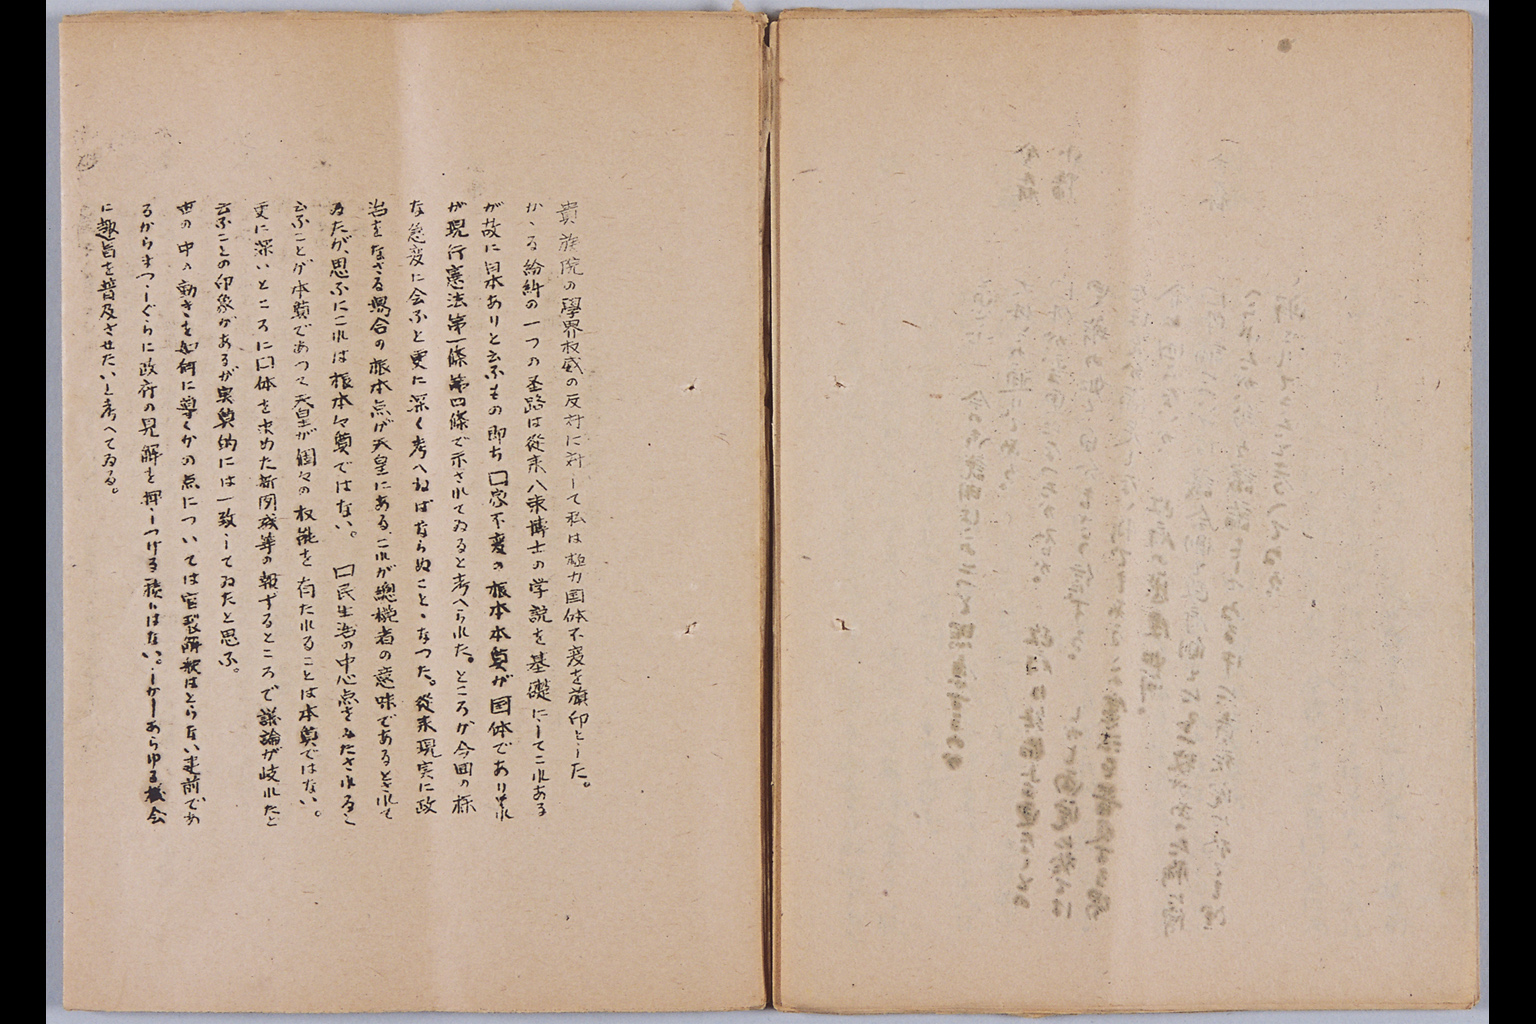 貴族院の學界权威の反対に対して私は極力国体不変を旗印とした。
かゝる紛糾の一つの圣路は従来八束博士の学説を基礎にしてこれある
が故に日本ありと云ふもの即ち囗家不変の根本本質が国体でありそれ
が現行憲法第一條第四條で示されてゐると考へられた。ところが今回の様
な急変に会ふと更に深く考へねばならぬことゝなつた。従来現実に政
治をなさる場合の根本点が天皇にある、これが總攬者の意味であるとされて
ゐたが、思ふにこれは根本々質ではない。囗民生活の中心点をみたされるこ
云ふことが本質であつて天皇が個々の权能を有たれることは本質ではない。
更に深いところに囗体を求めた新聞残等の報ずるところで議論が岐れたと
云ふことの印象があるが実質的には一致してゐたと思ふ。
世の中の動きを如何に導くかの点については官製解釈はとらない建前であ
るからまつしぐらに政府の見解を押しつける積りはない。しかしあらゆる機会
に趣旨を普及させたいと考へてゐる。